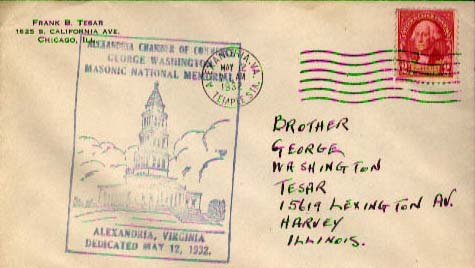 FRANK B. TESAR
1625 S. CALIFORNIA AVE.
CHICAGO, ILL.
ALEXANDRIA CHAMBER OF COMMERCE
GEORGE WASHINGTON
MASONIC NATIONAL MEMORIAL
ALEXANDRIA, VA.
MAY
AM
1932
TEMPLE STA.
BROTHER
GEORGE
WASHINGTON
TESAR
15619 LEXINGTON AV.
HARVEY
ILLINOIS.
ALEXANDRIA, VIRGINIA
DEDICATED MAY 12, 1932.